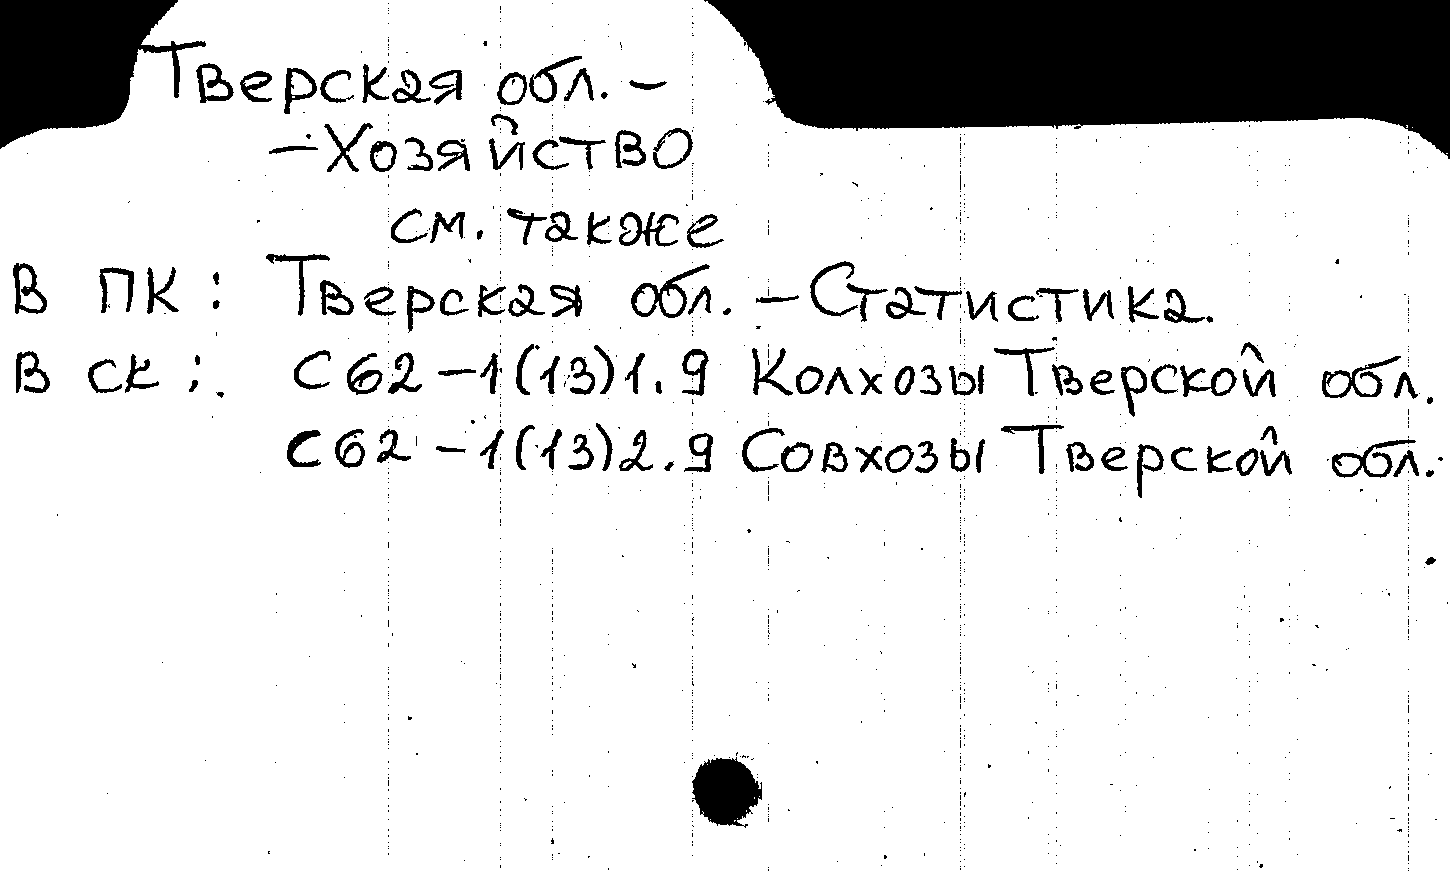 Тверская обл. –
– Хозяйство
см. также
В ПК: Тверская обл. – Статистика.
В СК: С62-1(13)1.9 Колхозы Тверской обл.
С62-1(13)2.9 Совхозы Тверской обл.